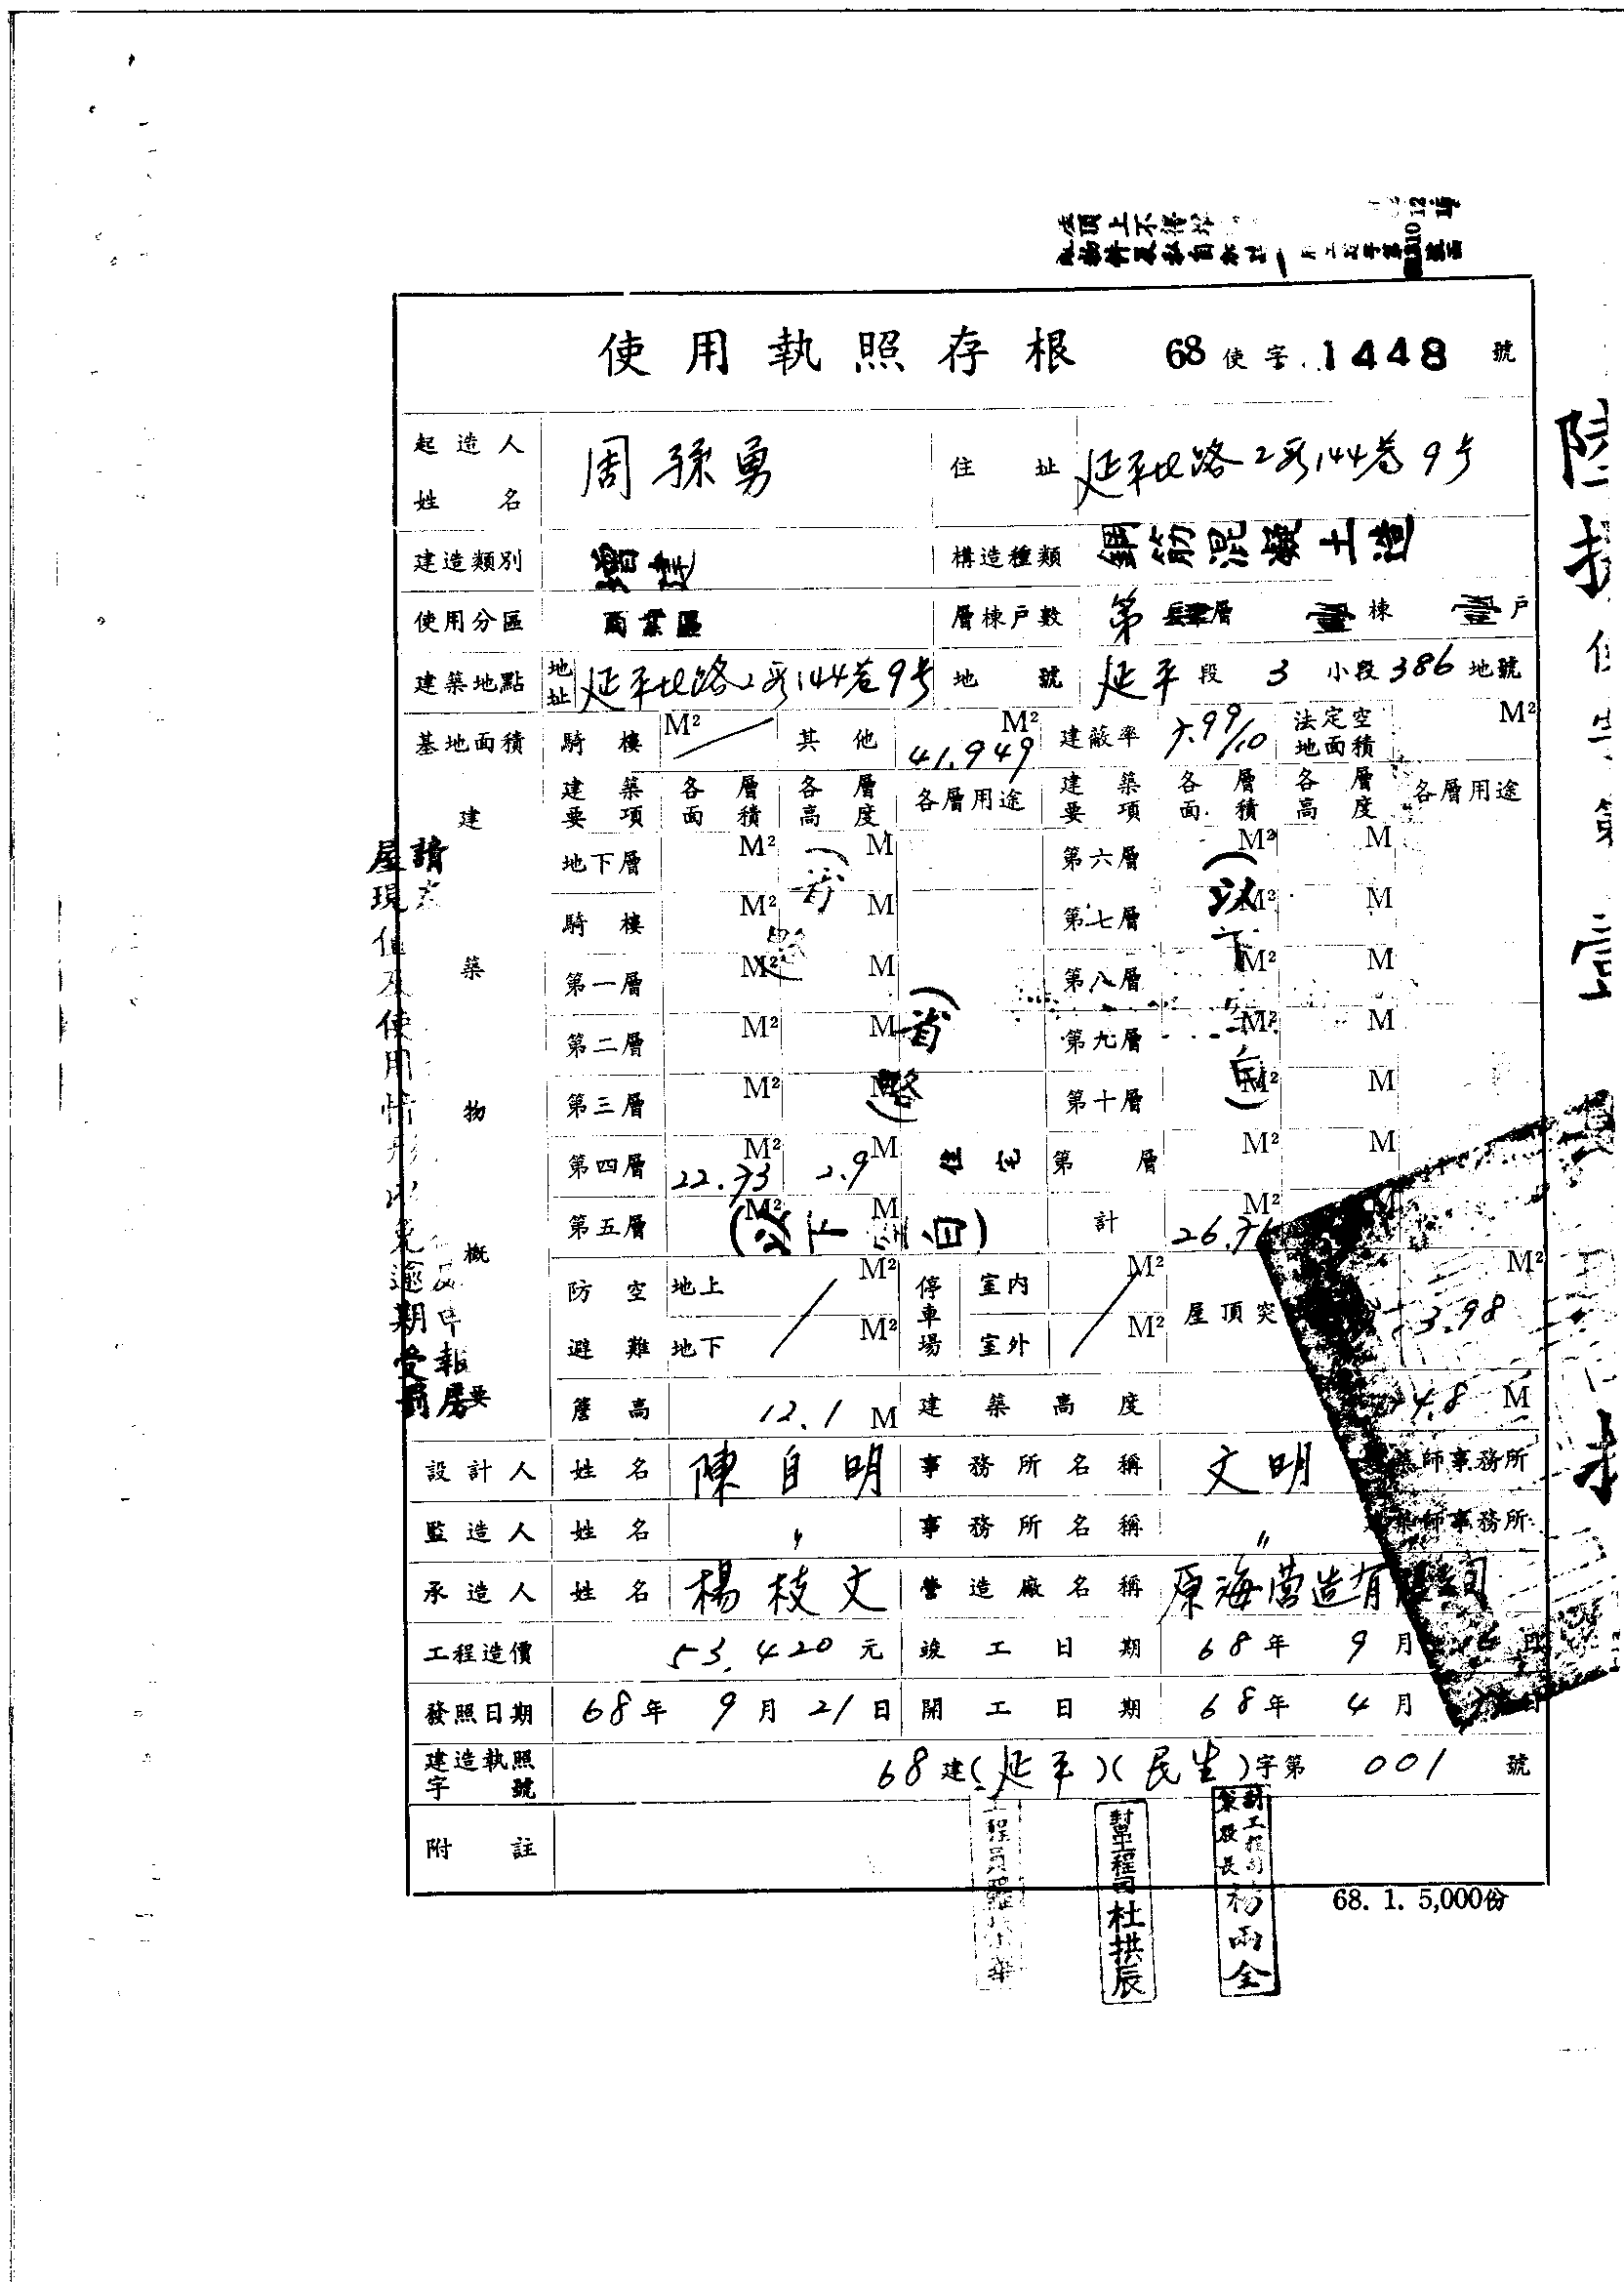 使用執照存根 68使字 1448 號
起造人姓名 周孫勇 住址 延平北路2段144巷9号
建造類別 增建 構造種類 鋼筋混凝土造
使用分區 商業區 層棟戶數 第肆層 壹棟 壹戶
建築地點 地址 延平北路2段144巷9号 地號 延平段 3小段 386地號
基地面積 騎樓 M² 其他 41.949 M² 建蔽率 法定空地面積 M²
建築物概要
建築要項 各層面積 各層高度 各層用途 建築要項 各層面積 各層高度 各層用途
地下層 M² M 第六層 M² M
騎樓 M² M 第七層 M² M
第一層 M² M 第八層 M² M
第二層 M² M 第九層 M² M
第三層 M² M 第十層 M² M
(省略)
(以下空白)
第四層 M² 2.9 M 住宅 第 層 M² M
第五層 M² M (以下空白) 計 M² M
防空避難 地上 M² 停車場 室內 M² 屋頂突 3.98 M²
地下 M² 室外 M²
簷高 12.1 M 建築高度 4.8 M
設計人 姓名 陳自明 事務所名稱 文明建築師事務所
監造人 姓名 〃 事務所名稱 〃 建築師事務所
承造人 姓名 楊枝文 營造廠名稱 原海營造有限公司
工程造價 53,420元 竣工日期 68年 9月 日
發照日期 68年 9月 21日 開工日期 68年 4月
建造執照字號 68建(延平)(民生)字第 001 號
附註
68. 1. 5,000份
幫工程司杜拱辰
副工程司
股長楊雨全
屋現值及使用情形以免逾期受罰